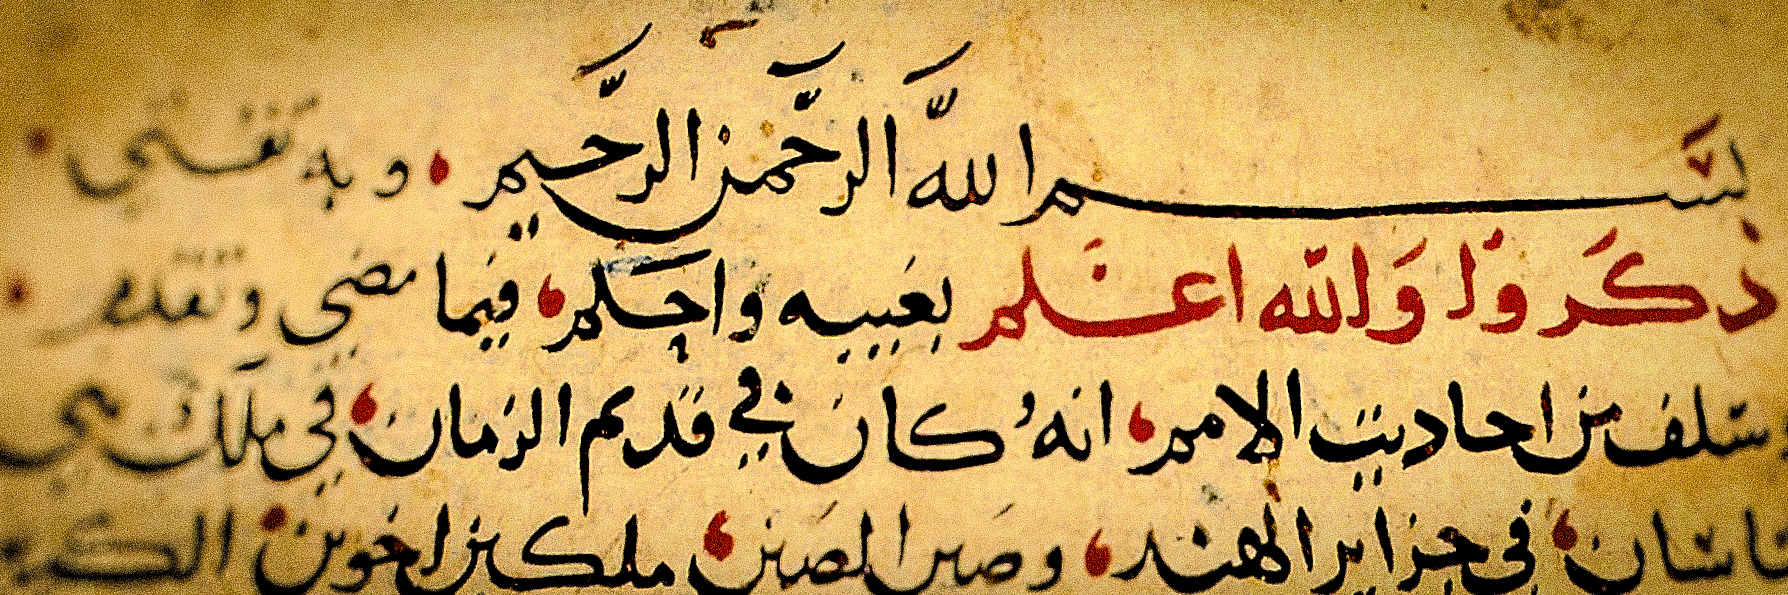 بسم الله الرحمن الرحيم وبه ثقتي
ذكروا والله اعلم بغيبه واحكم فيما مضى وتقدم
سلف من احاديث الامم انه كان في قديم الزمان في ملك بني
ساسان في جزاير الهند وصين الصين ملكين اخوين الكبير